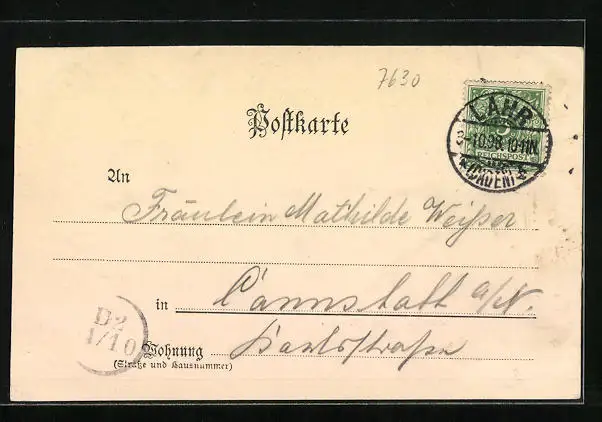 7630
Postkarte
LAHR
5
-1.10.98.10-11N.
REICHSPOST
*(BADEN)*
An
Fräulein Mathilde Weißer
in Cannstatt a/N.
D2
1/10
Wohnung Karlstraße
(Straße und Hausnummer)